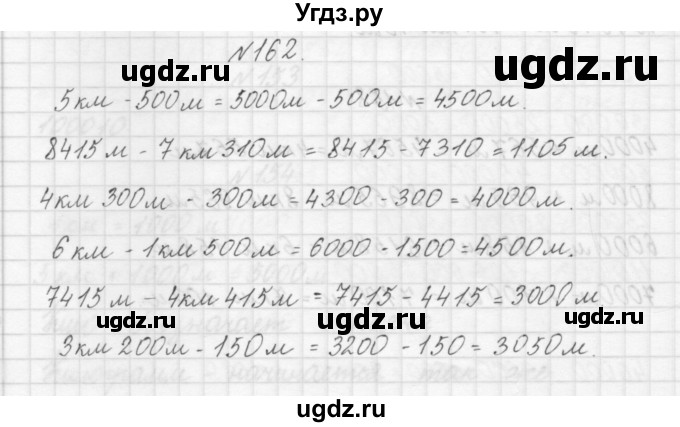 Угдз.ру
№162.
ugdz.ru
ugdz.ru
5км - 500м = 5000м - 500м = 4500м.
8415м - 7км 310м = 8415 - 7310 = 1105м.
ugdz.ru
ugdz.ru
4км 300м - 300м = 4300 - 300 = 4000м.
6км - 1км 500м = 6000 - 1500 = 4500м.
ugdz.ru
7415м - 4км 415м = 7415 - 4415 = 3000м
ugdz.ru
ugdz.ru
ugdz.ru
3км 200м - 150м = 3200 - 150 = 3050м.
ugdz.ru
ugdz.ru